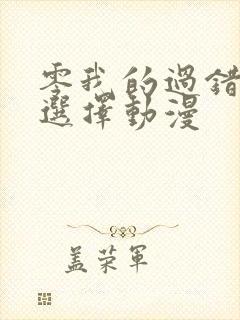 零我的過錯
選擇動漫
盖荣军